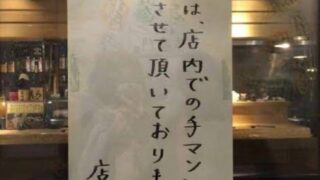 は、店内での手マン
させて頂いておりま
店